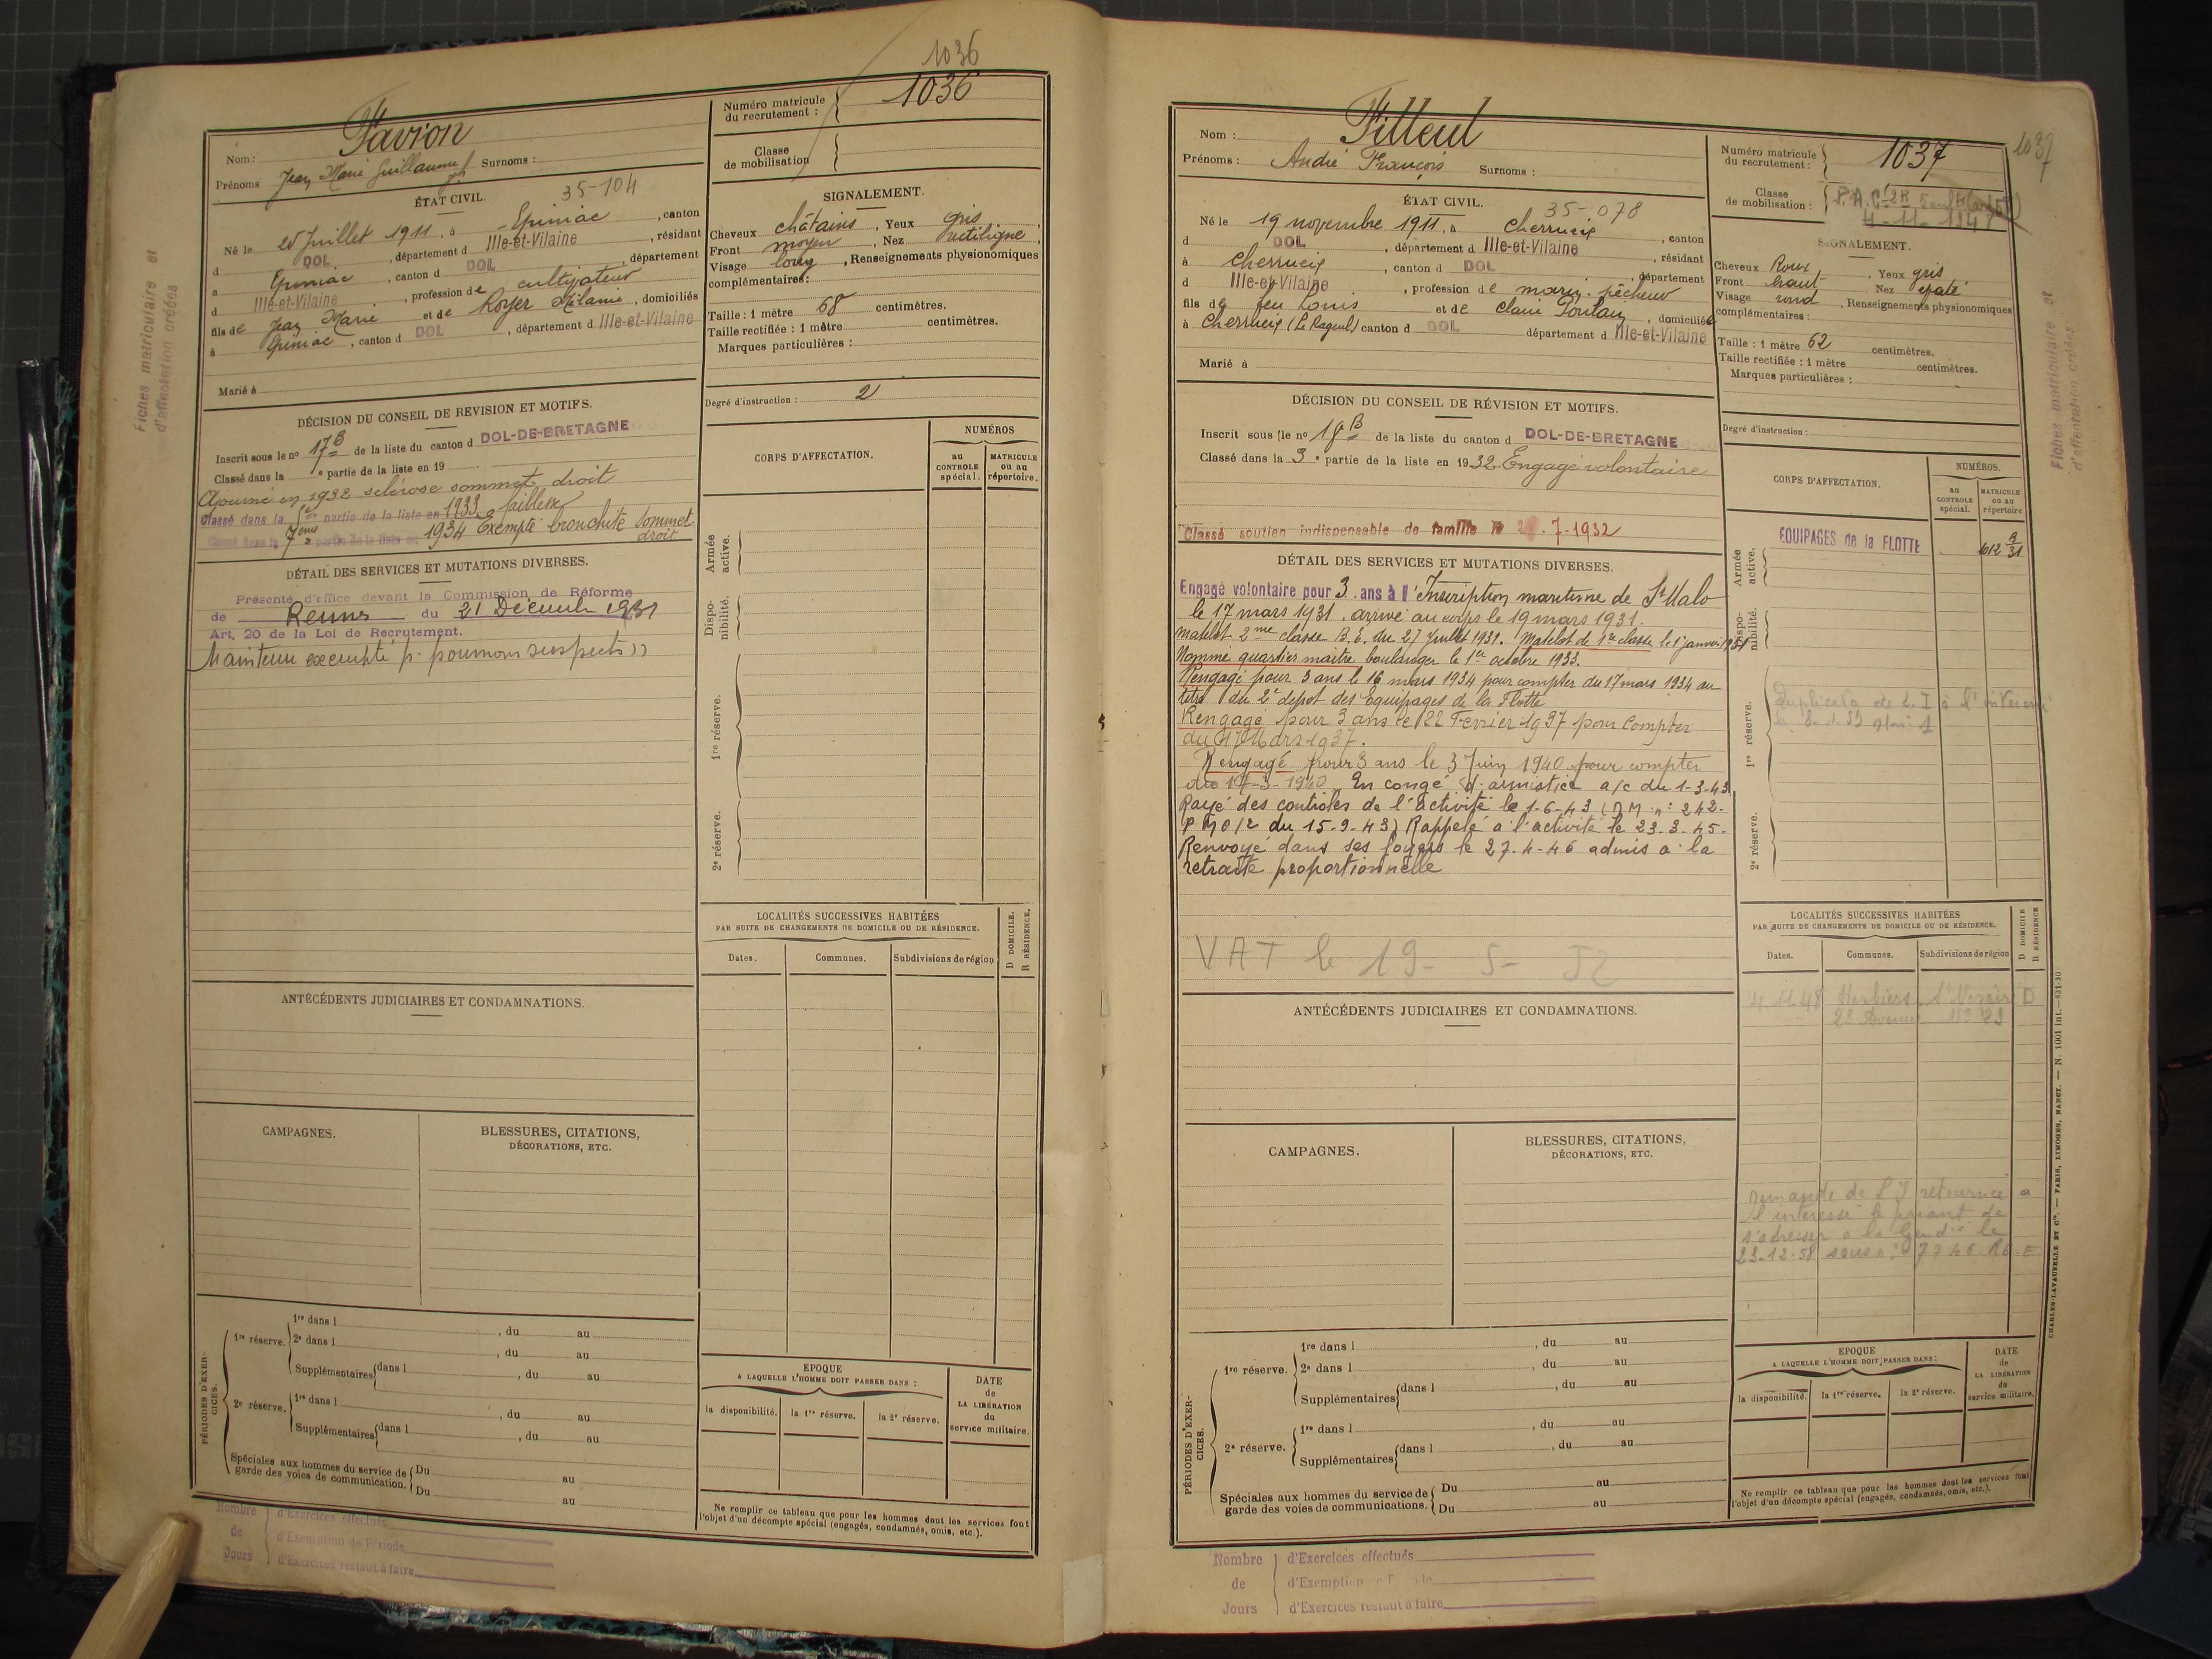 1036
Nom : Favion
Prénoms Jean Marie Guillaume Surnoms :
Numéro matricule du recrutement : 1036
Classe de mobilisation
ÉTAT CIVIL.
35-104
Né le Juillet 1911, à Epiniac, canton
d DOL, département d Ille-et-Vilaine, résidant
à Epiniac, canton d DOL, département
d Ille-et-Vilaine, profession de cultivateur
fils de Jean Marie et de Royer Mélanie, domiciliés
à Epiniac, canton d DOL, département d Ille-et-Vilaine
Marié à
SIGNALEMENT.
Cheveux châtains, Yeux gris,
Front moyen, Nez rectiligne,
Visage long, Renseignements physionomiques
complémentaires :
Taille : 1 mètre 68 centimètres.
Taille rectifiée : 1 mètre centimètres.
Marques particulières :
Degré d'instruction : 2
DÉCISION DU CONSEIL DE REVISION ET MOTIFS.
Inscrit sous le nº 17 B de la liste du canton d DOL-DE-BRETAGNE
Classé dans la e partie de la liste en 19
Ajourné en 1932 sclérose sommet droit
Classé dans la partie de la liste en 1933 faiblesse
Classé dans la 7ème partie de la liste en 1934 Exempté bronchite sommet
droit
DÉTAIL DES SERVICES ET MUTATIONS DIVERSES.
Présenté d'office devant la Commission de Réforme
de Rennes du 21 Décemb
Art. 20 de la Loi de Recrutement.
Maintenu exempté p. poumons suspects
CORPS D'AFFECTATION.
NUMÉROS
au CONTROLE spécial.
MATRICULE ou au répertoire.
Armée active.
Disponibilité.
1re réserve.
2e réserve.
LOCALITÉS SUCCESSIVES HABITÉES
PAR SUITE DE CHANGEMENTS DE DOMICILE OU DE RÉSIDENCE.
D DOMICILE.
R RÉSIDENCE.
Dates.
Communes.
Subdivisions de région
ANTÉCÉDENTS JUDICIAIRES ET CONDAMNATIONS.
CAMPAGNES.
BLESSURES, CITATIONS,
DÉCORATIONS, ETC.
PÉRIODES D'EXERCICES.
1re réserve.
1re dans l , du au
2e dans l , du au
Supplémentaires dans l , du au
2e réserve.
1re dans l , du au
Supplémentaires dans l , du au
Spéciales aux hommes du service de garde des voies de communication.
Du au
Du au
EPOQUE
A LAQUELLE L'HOMME DOIT PASSER DANS :
la disponibilité.
la 1re réserve.
la 2e réserve.
DATE
de
LA LIBÉRATION
du
service militaire.
Ne remplir ce tableau que pour les hommes dont les services font
l'objet d'un décompte spécial (engagés, condamnés, omis, etc.).
Nombre de Jours
d'Exercices effectués
d'Exemption de Période
d'Exercices restant à faire
Fiches matriculaire et
d'affectation créées
1037
Nom : Filleul
Prénoms : André François Surnoms :
Numéro matricule du recrutement : 1037
Classe de mobilisation :
4-11-1947
ÉTAT CIVIL.
35-078
Né le 19 novembre 1911, à Cherrueix, canton
d DOL, département d Ille-et-Vilaine, résidant
à Cherrueix, canton d DOL, département
d Ille-et-Vilaine, profession de marin-pêcheur
fils de feu Louis et de Claire Poulain, domiciliés
à Cherrueix canton d DOL département d Ille-et-Vilaine
Marié à
SIGNALEMENT.
Cheveux Roux, Yeux gris
Front haut, Nez épaté
Visage rond, Renseignements physionomiques
complémentaires :
Taille : 1 mètre 62 centimètres.
Taille rectifiée : 1 mètre centimètres.
Marques particulières :
Degré d'instruction :
DÉCISION DU CONSEIL DE RÉVISION ET MOTIFS.
Inscrit sous le nº 18 B de la liste du canton d DOL-DE-BRETAGNE
Classé dans la 3 e partie de la liste en 1932. Engagé volontaire
Classé soutien indispensable de famille le .7-1932
DÉTAIL DES SERVICES ET MUTATIONS DIVERSES.
Engagé volontaire pour 3 ans à l'Inscription maritime de St Malo
le 17 mars 1931. arrivé au corps le 19 mars 1931.
Matelot 2me classe B.E. du 27 Juillet 1931. Matelot de 1re classe le 1 janvier
Nommé quartier maître boulanger le 1er octobre 1933.
Rengagé pour 3 ans le 16 mars 1934 pour compter du 17 mars 1934 au
titre du 2e dépôt des Equipages de la Flotte
Rengagé pour 3 ans le 22 Fevrier 1937 pour compter
du 17 Mars 1937.
Rengagé pour 3 ans le 3 Juin 1940 pour compter
du 17-3-1940 En congé d'armistice a/c du 1-3-43
Rayé des contrôles de l'activité le 1-6-43 (DM n°: 242-
PMO/2 du 15-9-43) Rappelé à l'activité le 23-3-45.
Renvoyé dans ses foyers le 27-4-46 admis à la
retraite proportionnelle
VAT le 19-5-52
CORPS D'AFFECTATION.
NUMÉROS.
au CONTROLE spécial.
MATRICULE ou au répertoire
Armée active.
EQUIPAGES de la FLOTTE
612 B/31
Disponibilité.
1re réserve.
Duplicata de L.I à l'intéressé
2e réserve.
LOCALITÉS SUCCESSIVES HABITÉES
PAR SUITE DE CHANGEMENTS DE DOMICILE OU DE RÉSIDENCE.
D DOMICILE
R RÉSIDENCE
Dates.
Communes.
Subdivisions de région
4.11.48 Herbiers St Nazaire D
2e Avenue Nº 23
demande de L I retournée à
l'intéressé le priant de
s'adresser à la Gend le
23-12-58
ANTÉCÉDENTS JUDICIAIRES ET CONDAMNATIONS.
CAMPAGNES.
BLESSURES, CITATIONS,
DÉCORATIONS, ETC.
PÉRIODES D'EXERCICES.
1re réserve.
1re dans l , du au
2e dans l , du au
Supplémentaires dans l , du au
2e réserve.
1re dans l , du au
Supplémentaires dans l , du au
Spéciales aux hommes du service de garde des voies de communications.
Du au
Du au
EPOQUE
A LAQUELLE L'HOMME DOIT PASSER DANS :
la disponibilité.
la 1re réserve.
la 2e réserve.
DATE
de
LA LIBÉRATION
du
service militaire.
Ne remplir ce tableau que pour les hommes dont les services font
l'objet d'un décompte spécial (engagés, condamnés, omis, etc.).
CHARLES-LAVAUZELLE ET Cie. — PARIS, LIMOGES, NANCY. — N. 1001 int.—831-30
Nombre de Jours
d'Exercices effectués
d'Exemption
d'Exercices restant à faire
Fiches matriculaire et
d'affectation créées